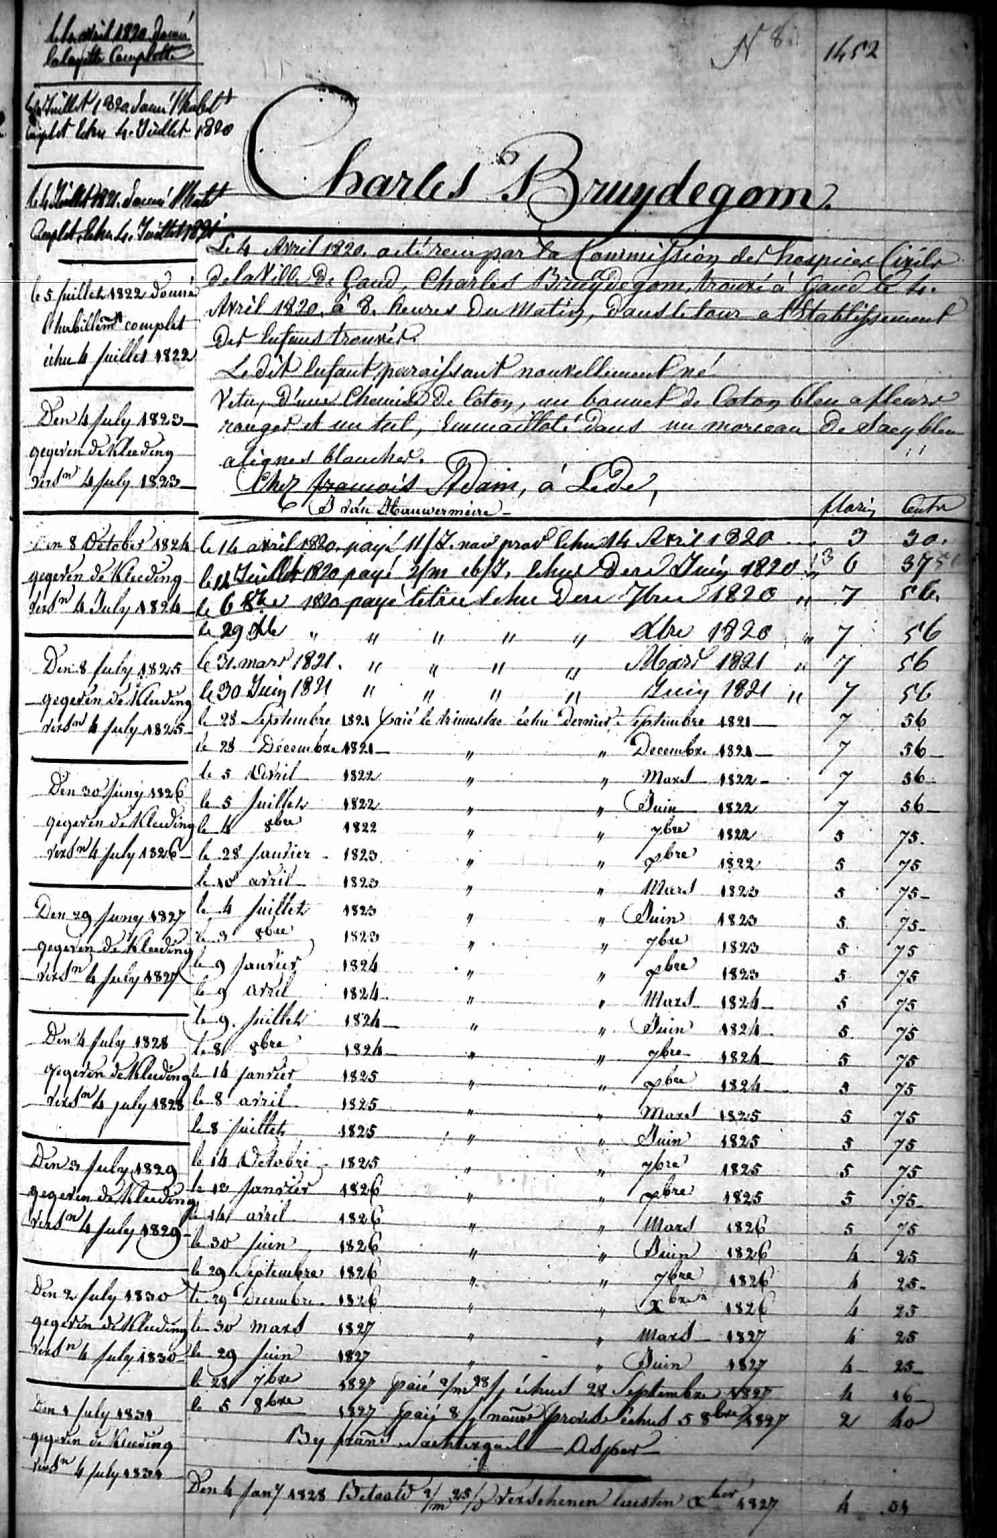 N 8. 1452
Charles Bruydegom.
Le 4 Avril 1820. a été reçu par la Commission des hospices Civils
de la Ville de Gand, Charles Bruydegom, trouvé à Gand le 4.
Avril 1820. à 8. heures du Matin, dans le tour a l'Etablissement
des Enfans trouvés.
Le dit Enfant, paraissant nouvellement né
Vetu, d'une Chemise de Coton, un bonnet de Coton bleu a fleurs
rouges et un tul, Emmaillotté dans un morceau de Saey bleu
a lignes blanches.
Chez francois Adam, à Lede,
florin Cents
le 14 avril 1820. payé 11/J. Echu 14 Avril 1820 3 30.
le 4 Juillet 1820 payé Echus Dere Juin 1820 6 37
le 6 8bre 1820 payé Echu Dere 7bre 1820 " 7 56.
le 29 Xbre " " " " " Xbre 1820 " 7 56
le 31. mars 1821. " " " " Mars 1821 " 7 56
le 30 Juin 1821 " " " " Juin 1821 " 7 56
le 28 Septembre 1821 payé le trimestre échu dernier Septembre 1821 — 7 56
le 28 Décembre 1821 — " " Decembre 1821 — 7 56 —
le 5 Avril 1822 " " Mars 1822 — 7 56 —
le 5 Juillet 1822 " " Juin 1822 7 56 —
le 4 8bre 1822 " " 7bre 1822 5 75.
le 28 Janvier 1823 " " xbre 1822 5 75
le 10 avril 1823 " " Mars 1823 5 75 —
le 4 Juillet 1823 " " Juin 1823 5 75 —
le 3 8bre 1823 " " 7bre 1823 5 75
le 9 Janvier 1824 " " xbre 1823 5 75
le 9 avril 1824 " " Mars 1824 5 75
le 9. Juillet 1824 — " " Juin 1824 5 75
le 8 8bre 1824 — " " 7bre 1824 5 75
le 14 janvier 1825 " " xbre 1824 5 75
le 8 avril 1825 " " Mars 1825 5 75
le 8 Juillet 1825 " " Juin 1825 5 75
le 14 Octobre 1825 " " 7bre 1825 5 75
le 12 Janvier 1826 " " xbre 1825 5 75
le 14 avril 1826 " " Mars 1826 5 75
le 30 juin 1826 " " Juin 1826 4 25
le 29 Septembre 1826 " " 7bre 1826 4 25
le 29 Decembre 1826 " " Xbre 1826 4 25
le 30 mars 1827 " " Mars 1827 4 25
le 29 Juin 1827 " " Juin 1827 4 25
le 28 7bre 1827 payé échus 28 Septembre 1827 4 16
le 5 8bre 1827 payé 8/J échus 5 8bre 1827 2 40
By Asper —
Den 4 Janry 1828 Betaald verschenen 1827 4 04
le 4 avril 1820 Donné
la layette Complette
le 4 Juillet 1820 Donné l'habt
Complet Echu 4. Juillet 1820
le 4 Juillet 1821. donné l'habt
Complet, Echu 4. Juillet 1821
le 5 juillet 1822 donné
l'habillemt complet
échu 4 juillet 1822
Den 4 July 1823 —
gegeven de Kleeding
versn 4 july 1823 —
Den 8 October 1824
gegeven de Kleeding
versn 4 July 1824 —
Den 8 July 1825
gegeven de Kleeding
versn 4 july 1825 —
Den 30 Juny 1826
gegeven de Kleeding
versn 4 july 1826 —
Den 29 Juny 1827
gegeven de Kleeding
versn 4 july 1827
Den 4 July 1828
gegeven de Kleeding
versn 4 july 1828
Den 3 July 1829
gegeven de Kleeding
versn 4 July 1829 —
Den 2 july 1830
gegeven de Kleeding
versn 4 july 1830 —
Den 1 july 1831
gegeven de Kleeding
versn 4 july 1831